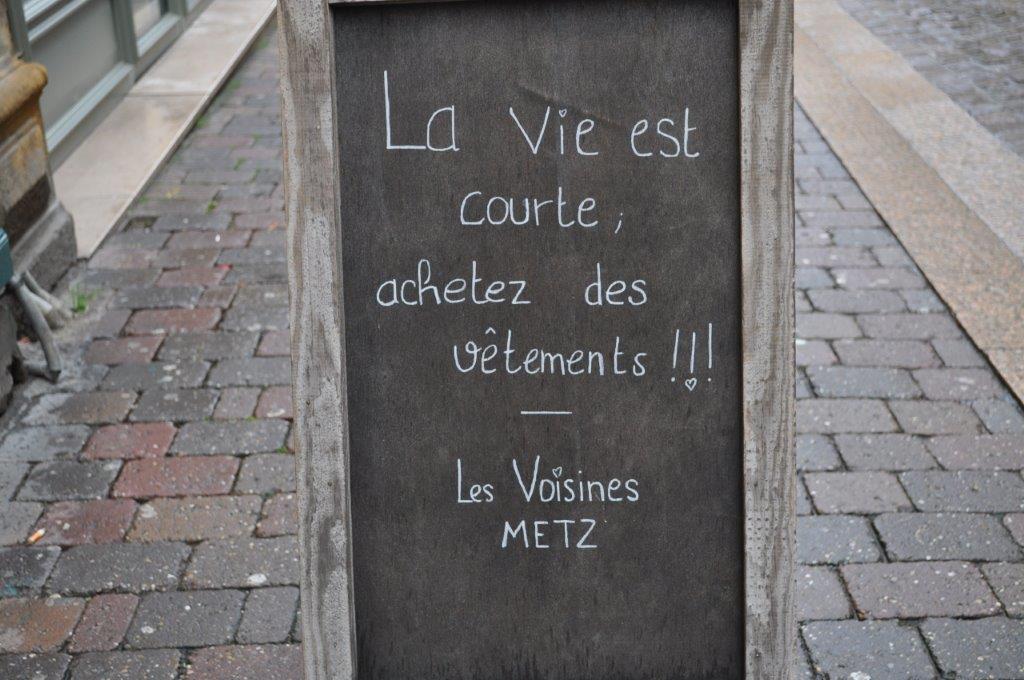 La Vie est
courte ;
achetez des
vêtements !!!
—
Les Voisines
METZ